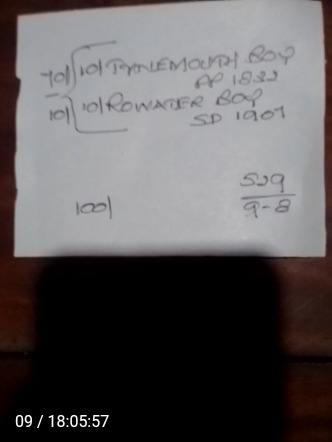 70/ 10/ TYNEMOUTH BOY
AP 1832
10/ 10/ ROWATER BOY
SD 1907
529
100/ 9-8
09 / 18:05:57